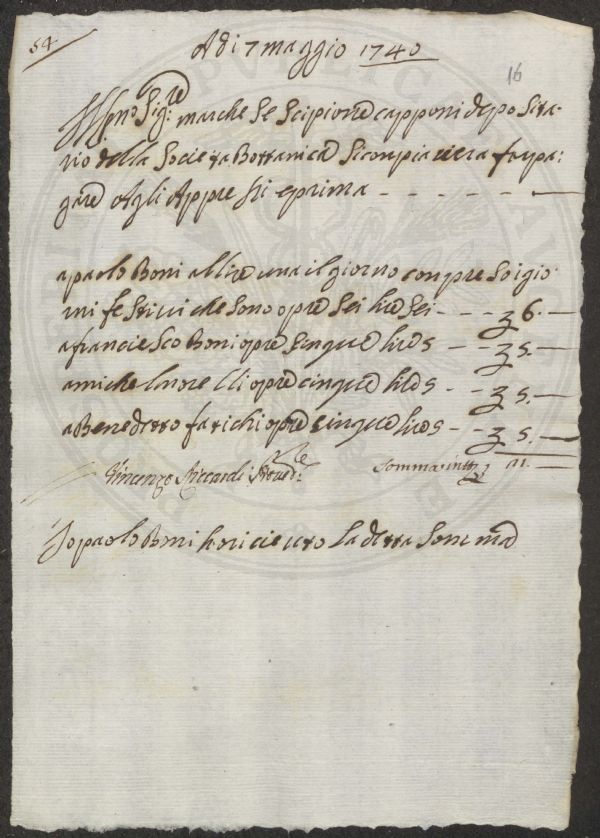 54
Adi 7 maggio 1740
16
Ill.mo Sig.re marchese Scipione capponi deposita-
rio della Societa Bottanica Si conpiacera far pa:
gare Agli Appresti e prima
a paolo Boni a llire una il giorno conpreso i gio
rni festivi che sono opre sei lire sei - 6.
a francie Sco Boni opre Cinque lire 5 - 5.
a michel morelli opre cinque lire 5 - 5.
a Benedetto fatichi opre cinque lire 5 - 5.
Vincenzo Riccardi Proved.re Somma in tt.o 21.
Io paolo Boni ho riceuto La detta Somma